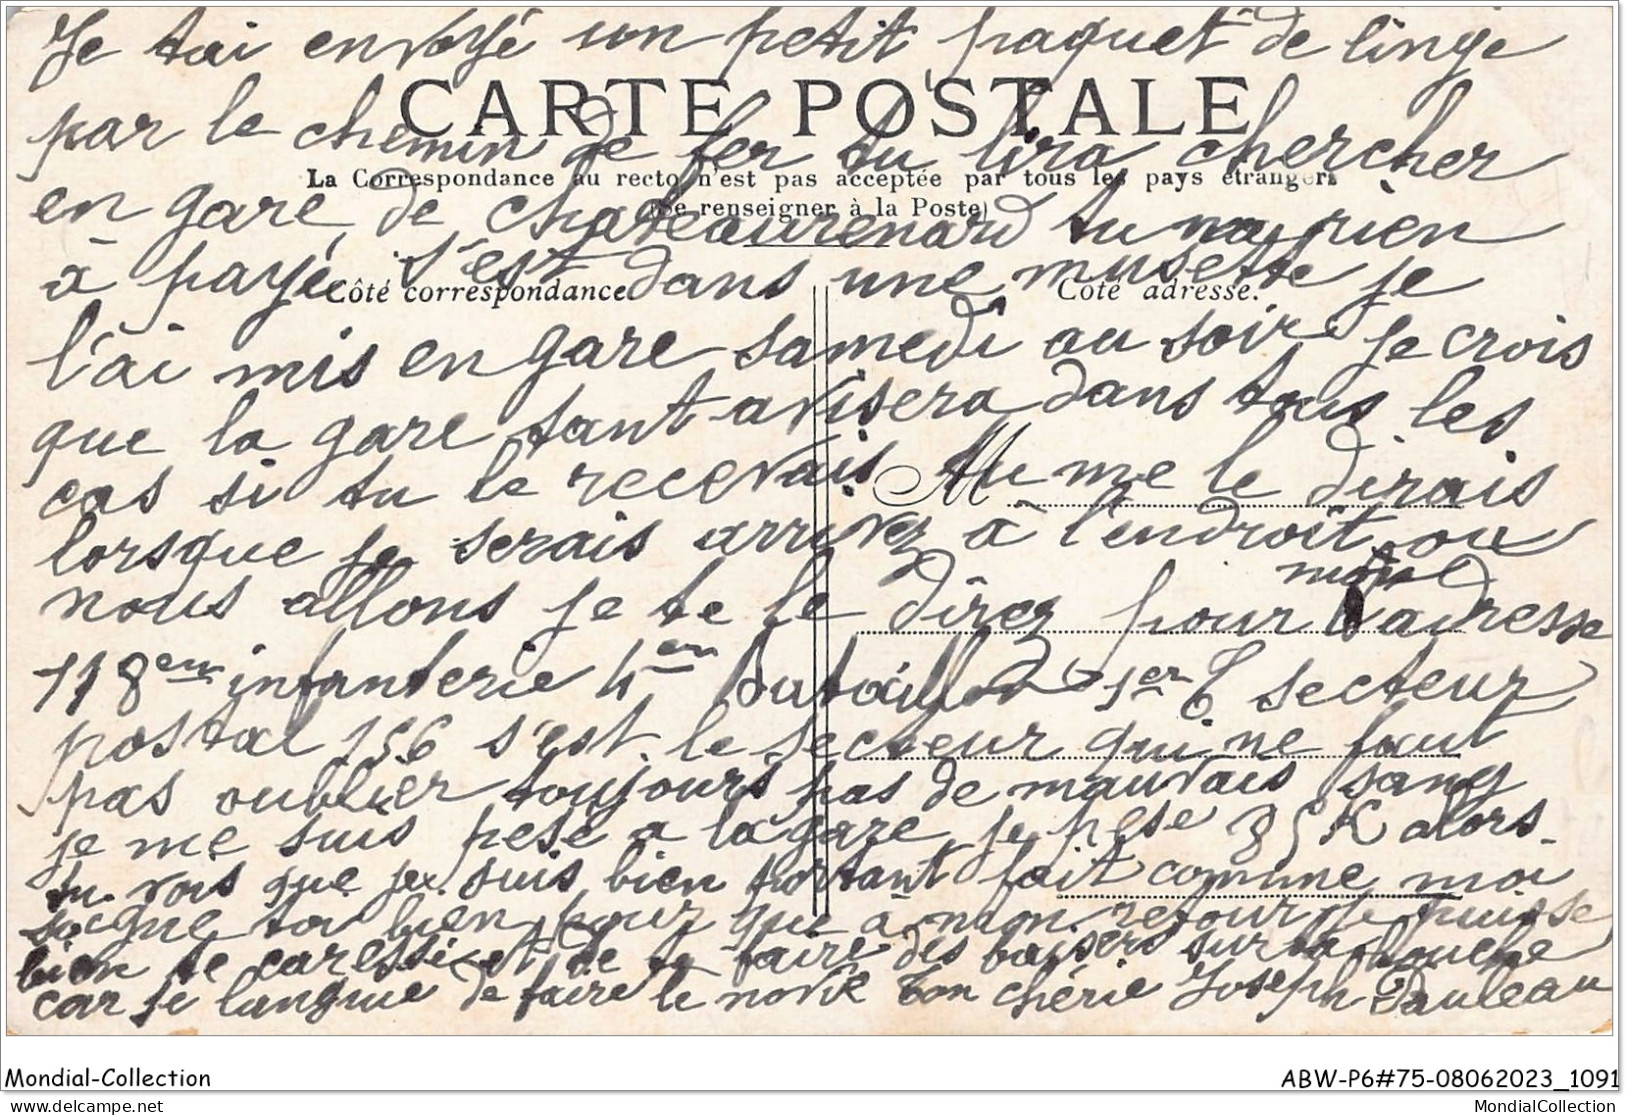 Je tai envoyé un petit paquet de linge
CARTE POSTALE
par le chemin de fer tu lira chercher
La Correspondance au recto n'est pas acceptée par tous les pays étrangers
en gare de Chateaurenard tu na rien
(Se renseigner à la Poste)
à payé s'est dans une musette je
Côté correspondance
Côté adresse.
l'ai mis en gare samedi au soir je crois
que la gare tant avisera dans tous les
cas si tu le recevais tu me le dirais
M
lorsque je serais arrivez à l'endroit ou
nous allons je te le direz pour l'adresse
118em infanterie 4em Bataillon 1er C secteur
postal 156 s'est le secteur qui ne faut
pas oublier toujours pas de mauvais sang
je me suis pesé a la gare je pese 85 K alors
tu vois que je suis bien portant fait comme moi
socgne toi bien pour que à mon retour je puisse
bien te caressé et de te faire des baisers sur ta bouche
car je langue de faire le novi Ton chérie Joseph Pauleau
Mondial-Collection
ABW-P6#75-08062023_1091
delcampe.net
MondialCollection